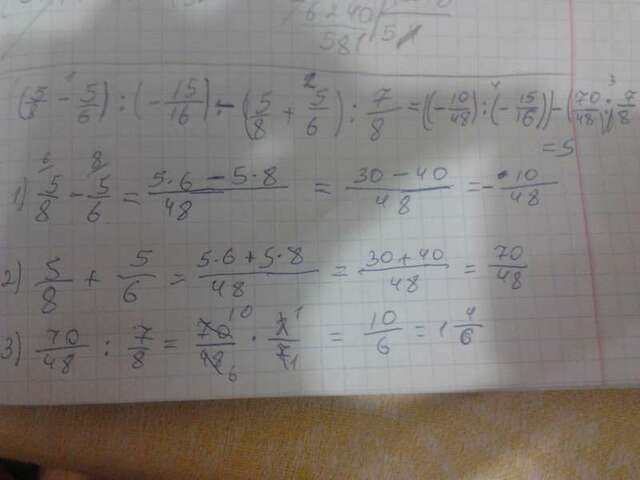 6 + 40
581 51
(5/8 - 5/6) : (-15/16) - (5/8 + 5/6) : 7/8 = ((-10/48) : (-15/16)) - (70/48) : 7/8
= 5
1) 5/8 - 5/6 = (5·6 - 5·8)/48 = (30 - 40)/48 = -10/48
2) 5/8 + 5/6 = (5·6 + 5·8)/48 = (30 + 40)/48 = 70/48
3) 70/48 : 7/8 = 70/48 · 8/7 = 10/6 = 1 4/6